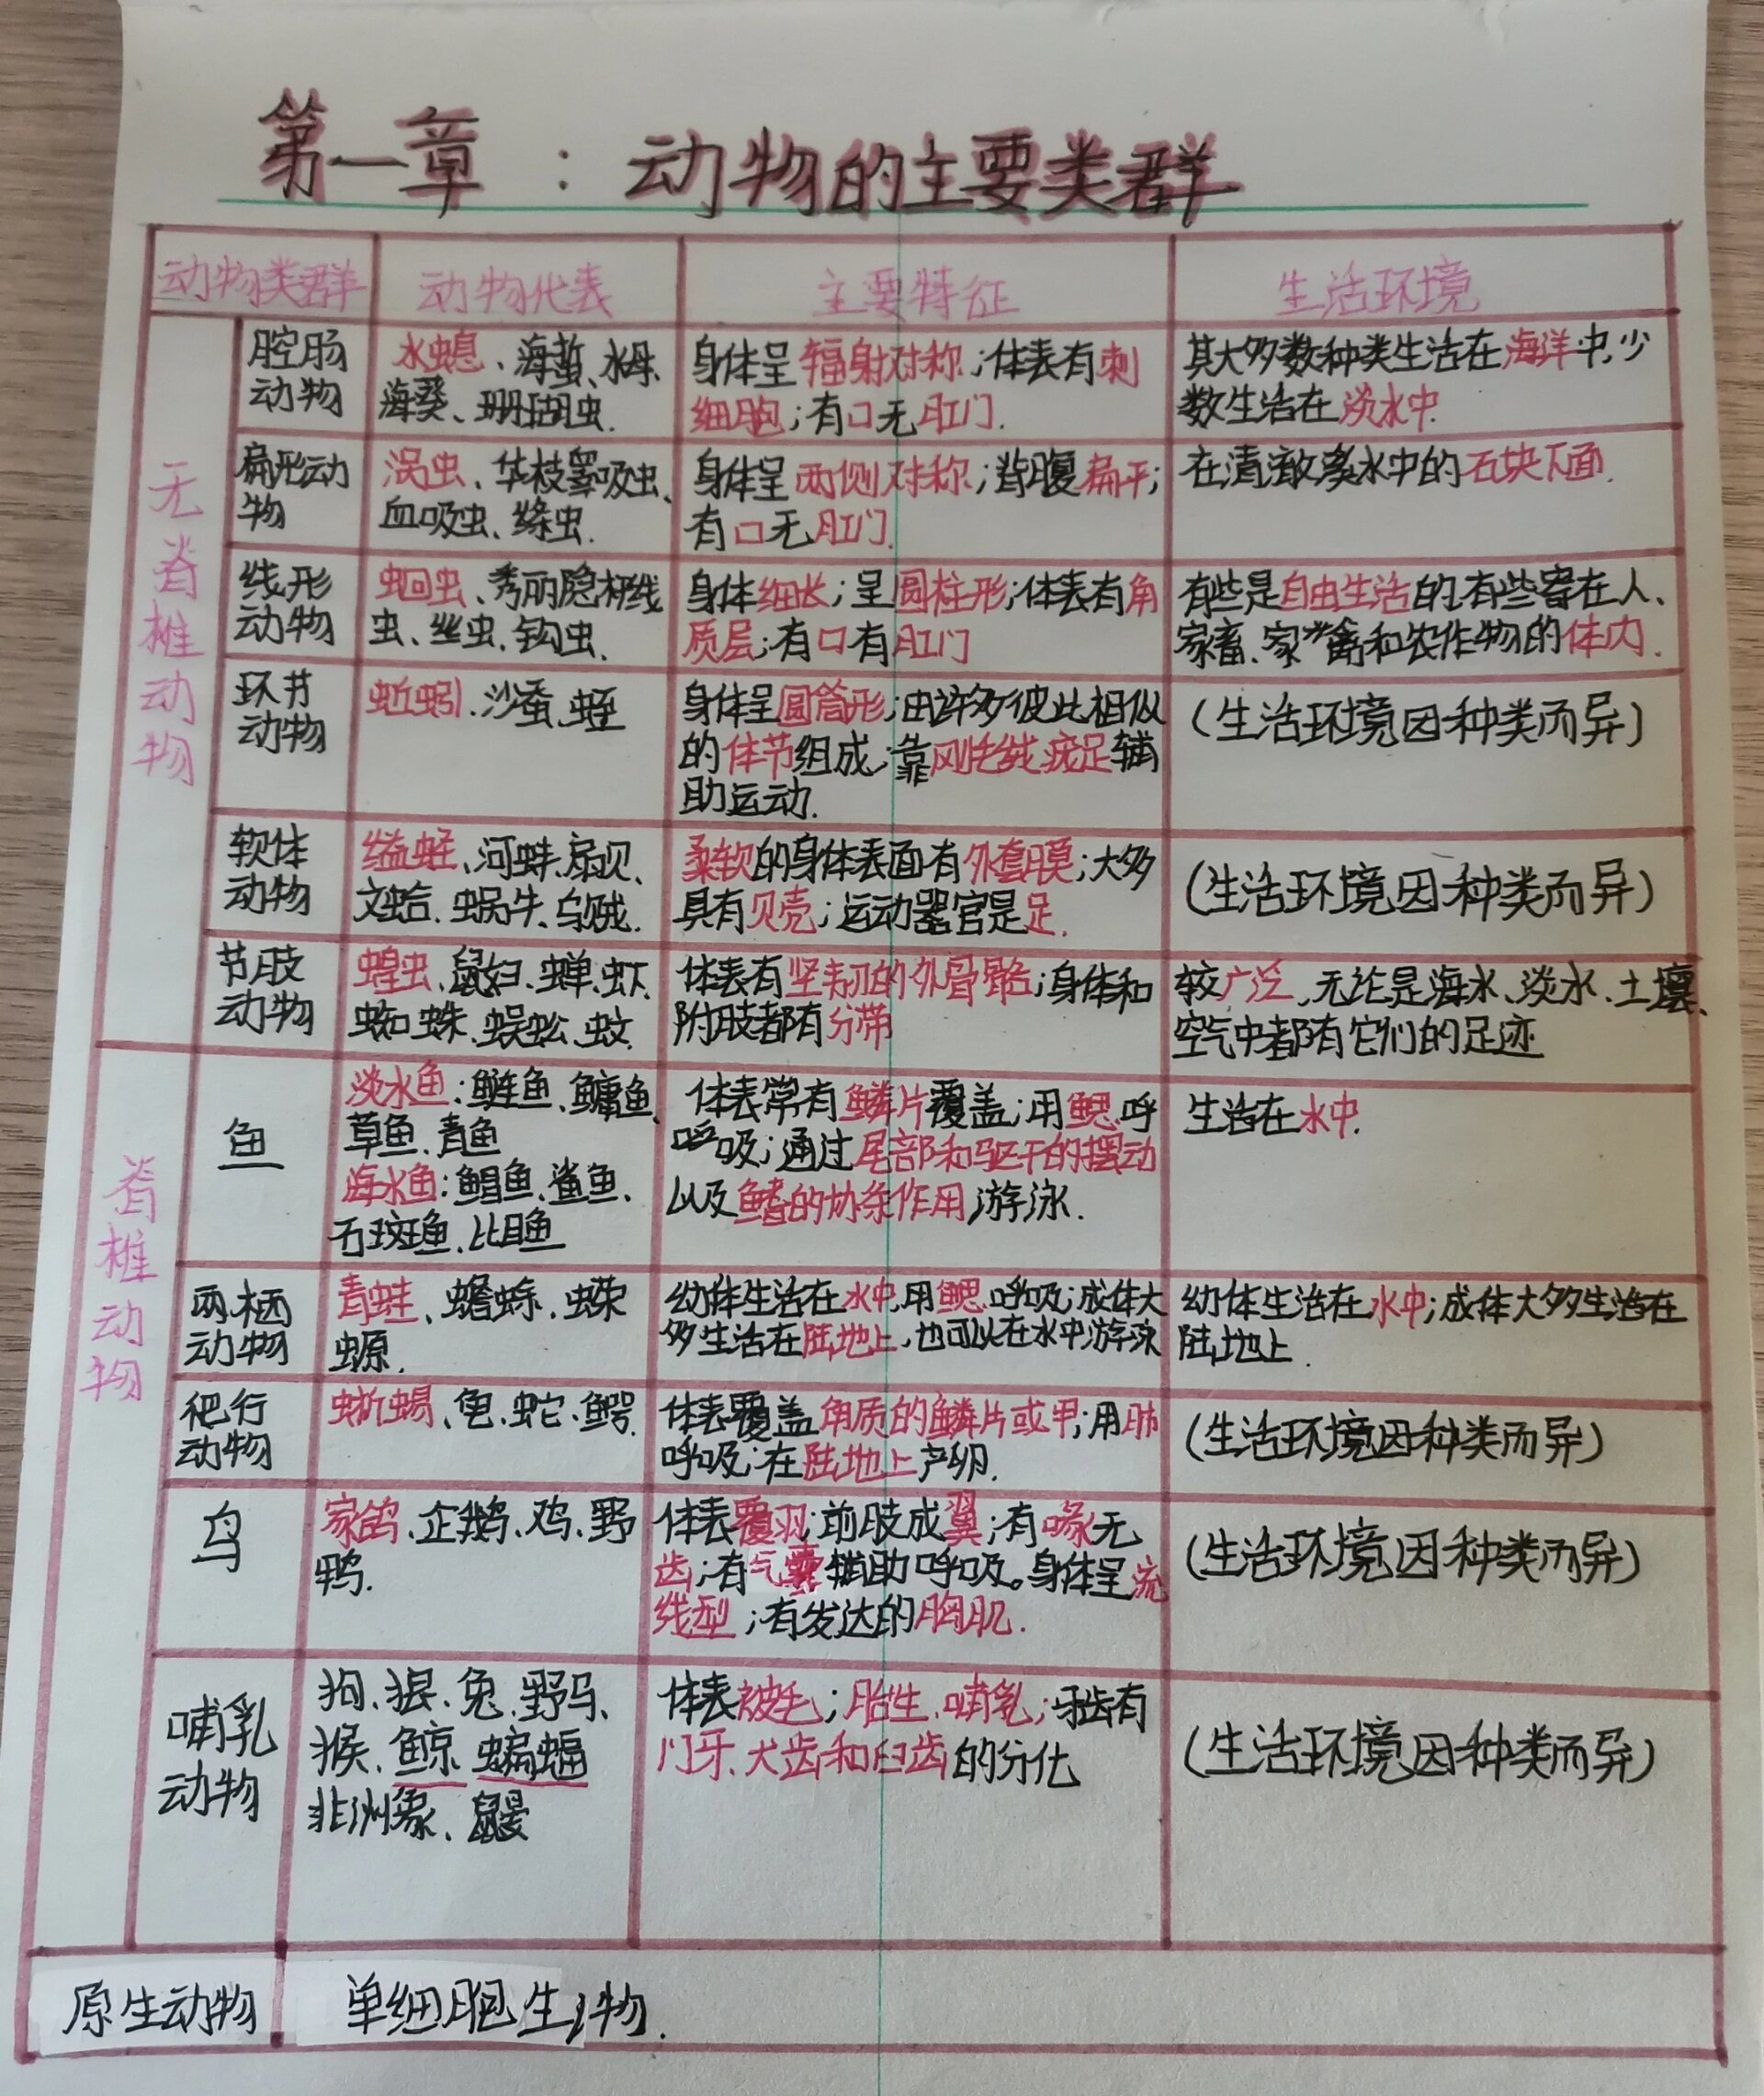 第一章：动物的主要类群
动物类群 动物代表 主要特征 生活环境
无脊椎动物
腔肠
动物
水螅、海蜇、水母、
海葵、珊瑚虫.
身体呈辐射对称；体表有刺
细胞；有口无肛门.
其大多数种类生活在海洋中,少
数生活在淡水中.
扁形动
物
涡虫、华枝睾吸虫、
血吸虫、绦虫.
身体呈两侧对称；背腹扁平；
有口无肛门.
在清澈溪水中的石块下面.
线形
动物
蛔虫、秀丽隐杆线
虫、丝虫、钩虫.
身体细长；呈圆柱形；体表有角
质层；有口有肛门
有些是自由生活的.有些寄在人、
家畜、家禽和农作物的体内.
环节
动物
蚯蚓、沙蚕、蛭
身体呈圆筒形；由许多彼此相似
的体节组成，靠刚毛或疣足辅
助运动.
（生活环境因种类而异）
软体
动物
缢蛏、河蚌、扇贝、
文蛤、蜗牛、乌贼.
柔软的身体表面有外套膜；大多
具有贝壳；运动器官是足.
（生活环境因种类而异）
节肢
动物
蝗虫、鼠妇、蝉、虾、
蜘蛛、蜈蚣、蚊.
体表有坚韧的外骨骼；身体和
附肢都有分节
较广泛,无论是海水、淡水、土壤、
空气中都有它们的足迹
脊椎动物
鱼
淡水鱼：鲢鱼、鳙鱼、
草鱼、青鱼
海水鱼：鲳鱼、鲨鱼、
石斑鱼、比目鱼
体表常有鳞片覆盖；用鳃呼
呼吸；通过尾部和躯干的摆动
以及鳍的协条作用游泳.
生活在水中.
两栖
动物
青蛙、蟾蜍、蝾
螈.
幼体生活在水中,用鳃呼吸；成体大
多生活在陆地上，也可以在水中游泳
幼体生活在水中；成体大多生活在
陆地上.
爬行
动物
蜥蜴、龟、蛇、鳄.
体表覆盖角质的鳞片或甲；用肺
呼吸；在陆地上产卵.
（生活环境因种类而异）
鸟
家鸽、企鹅、鸡、野
鸭.
体表覆羽；前肢成翼；有喙无
齿；有气囊辅助呼吸。身体呈流
线型；有发达的胸肌.
（生活环境因种类而异）
哺乳
动物
狗、狼、兔、野马、
猴、鲸、蝙蝠
非洲象、鼹
体表被毛；胎生、哺乳；牙齿有
门牙、犬齿和臼齿的分化
（生活环境因种类而异）
原生动物 单细胞生物.